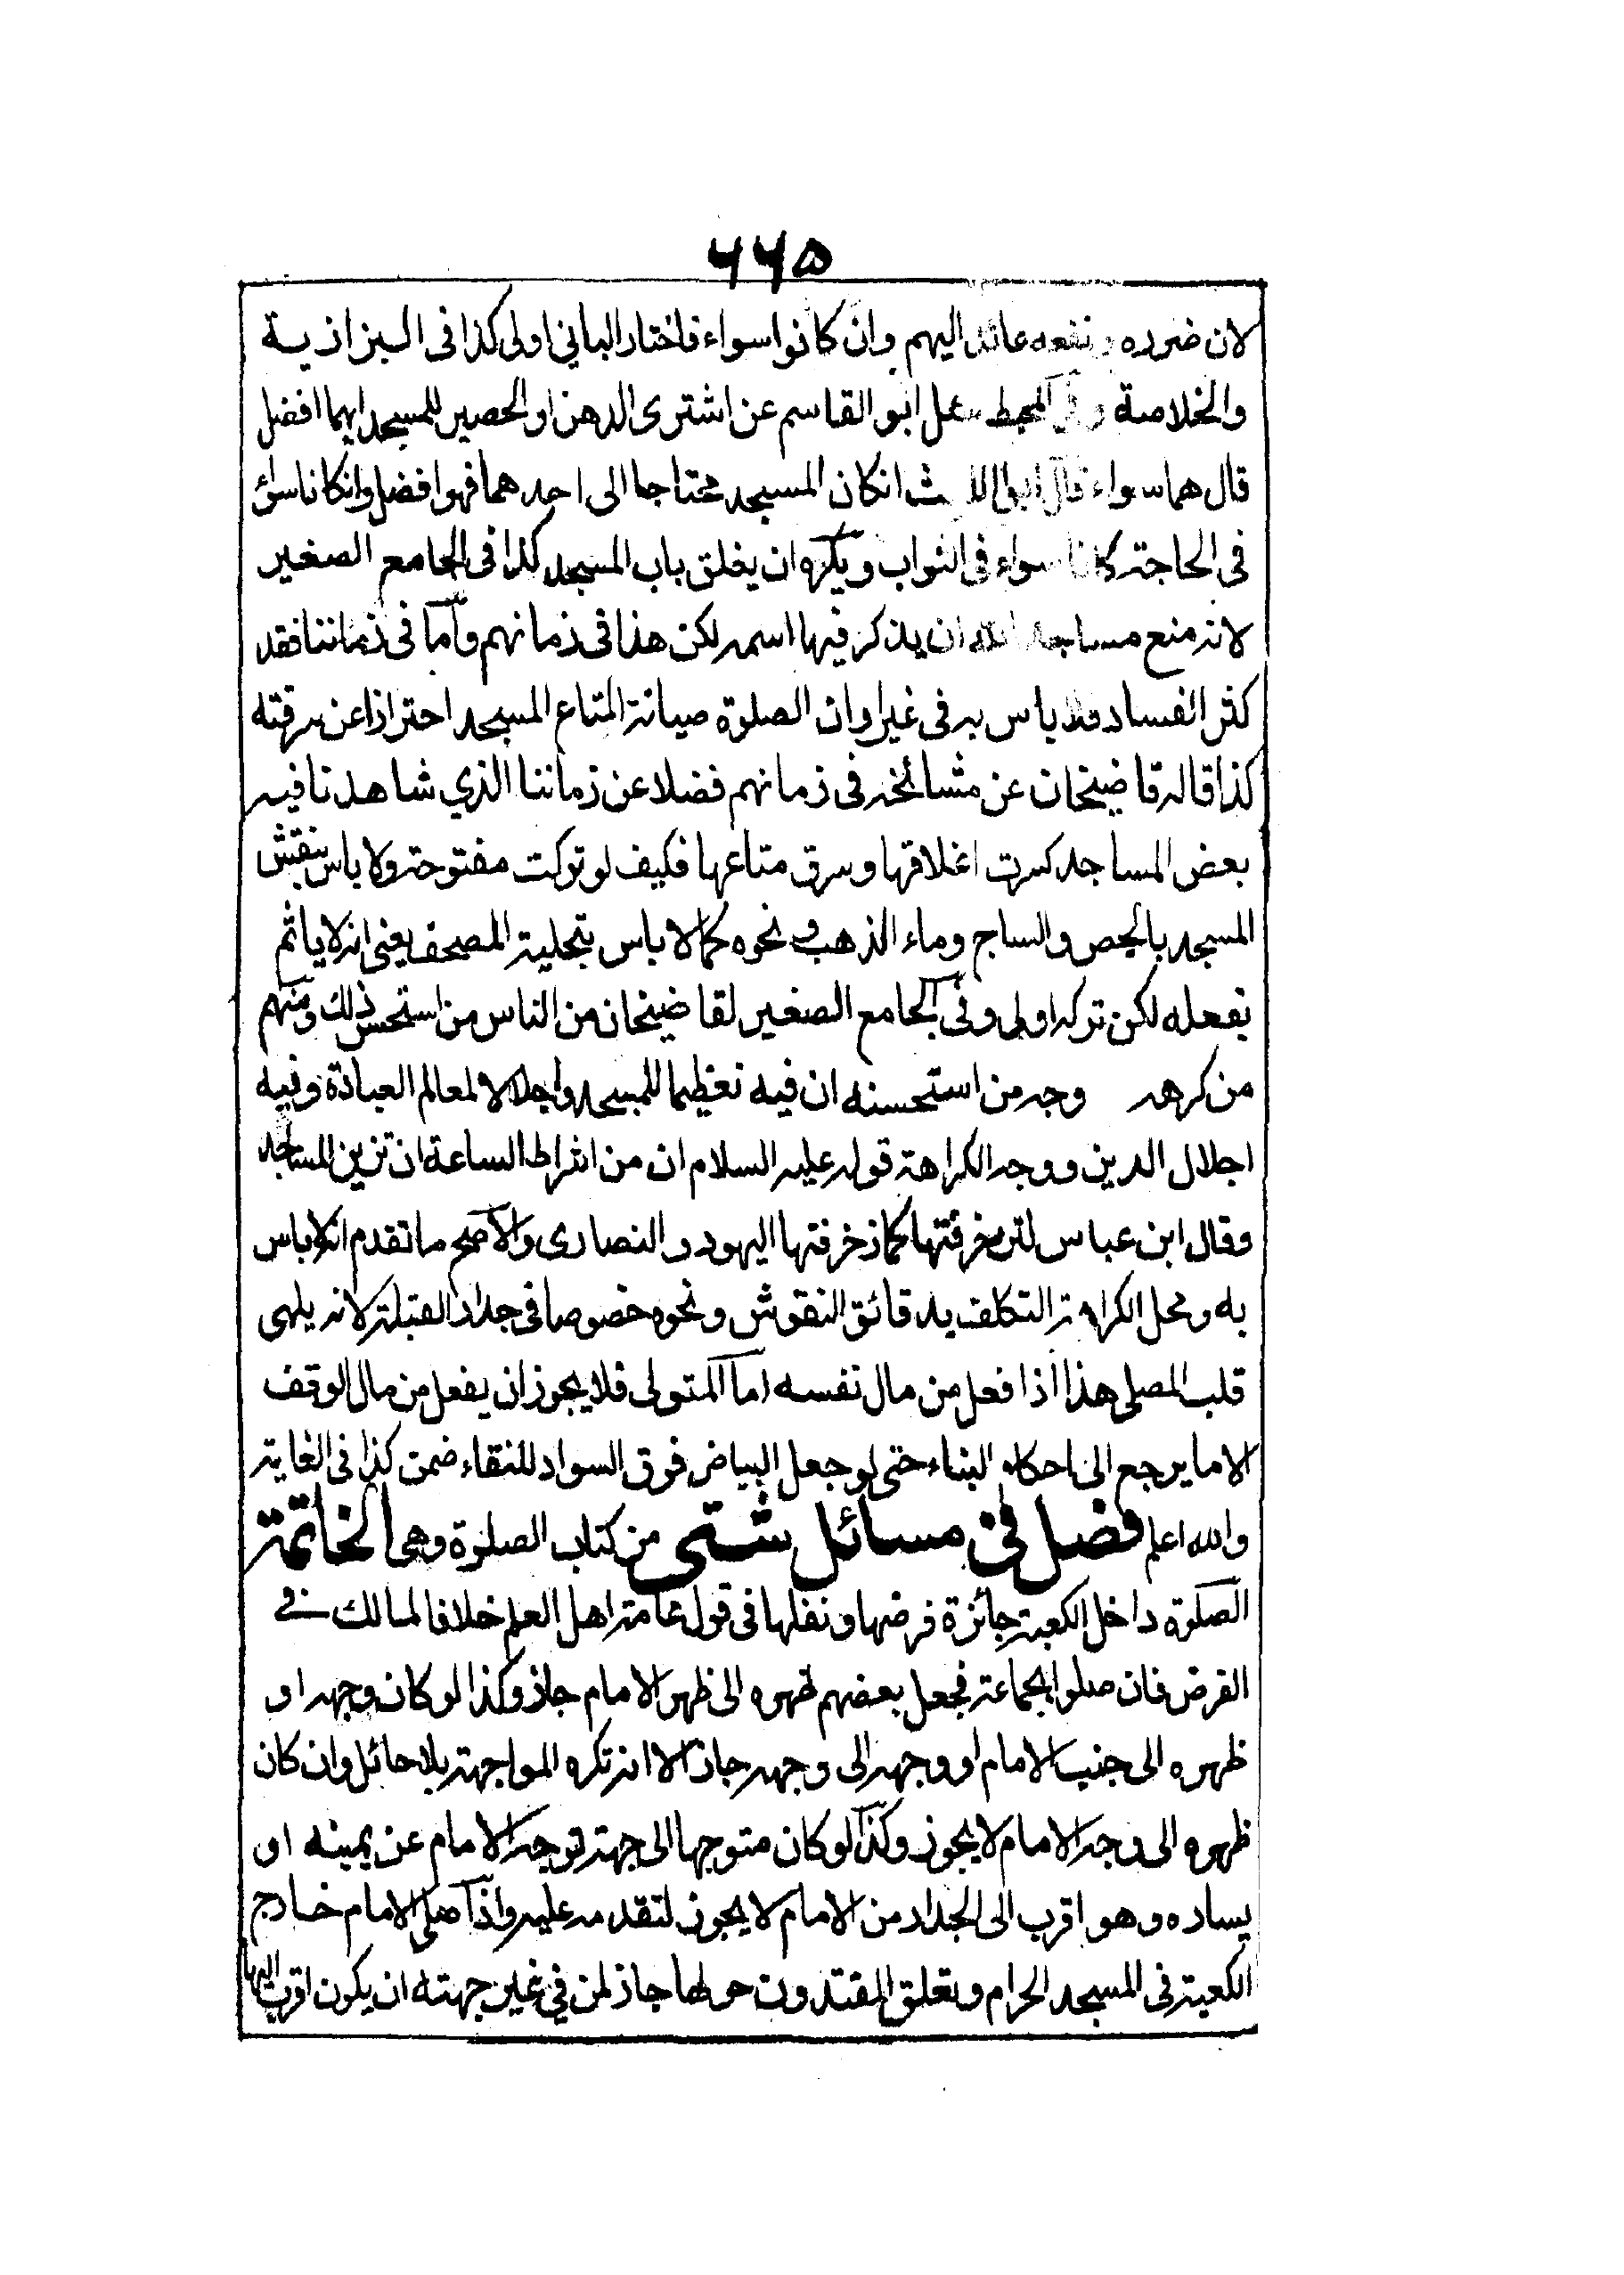 ۶۶۵
لان ضرره ونفعه عائد اليهم وان كانوا سواء فاختار البانى اولى كذا فى البزازية
والخلاصة وفى المحيط سئل ابو القاسم عن اشترى الدهن او الحصير للمسجد ايهما افضل
قال هما سواء قال ابو الليث انكان المسجد محتاجا الى احدهما فهو افضل وانكانا سواء
فى الحاجة كانا سواء فى الثواب ويكره ان يغلق باب المسجد كذا فى الجامع الصغير
لانه منع مساجد الله ان يذكر فيها اسمه لكن هذا فى زمانهم وأما فى زماننا فقد
كثر الفساد فلا باس به فى غير اوان الصلوة صيانة لمتاع المسجد احترازا عن سرقته
كذا قاله قاضيخان عن مشائخه فى زمانهم فضلا عن زماننا الذي شاهدنا فيه
بعض المساجد كسرت اغلاقها وسرق متاعها فكيف لو تركت مفتوحة ولا باس بنقش
المسجد بالجص والساج وماء الذهب ونحوه كما لا باس بتحلية المصحف يعنى انه لا ياثم
بفعله لكن تركه اولى وفى الجامع الصغير لقاضيخان من الناس من استحسن ذلك ومنهم
من كرهه وجه من استحسنه ان فيه تعظيما للمسجد واجلالا لمعالم العبادة وفيه
اجلال الدين ووجه الكراهة قوله عليه السلام ان من اشراط الساعة ان تزين المساجد
وقال ابن عباس لتزخرفنها كما زخرفتها اليهود والنصارى والاصح ما تقدم انه لا باس
به ومحل الكراهة التكلف بدقائق النقوش ونحوه خصوصا فى جدار القبلة لانه يلهى
قلب المصلى هذا اذا فعل من مال نفسه اما المتولى فلا يجوز ان يفعل من مال الوقف
الا ما يرجع الى احكام البناء حتى لو جعل البياض فوق السواد للنقاء ضمن كذا فى الغاية
والله اعلم فصل فى مسائل شتى من كتاب الصلوة وهى الخاتمة
الصلوة داخل الكعبة جائزة فرضها ونفلها فى قول عامة اهل العلم خلافا لمالك فى
الفرض فان صلوا بجماعة فجعل بعضهم ظهره الى ظهر الامام جاز وكذا لو كان وجهه او
ظهره الى جنب الامام او وجهه الى وجهه جاز الا انه تكره المواجهة بلا حائل وان كان
ظهره الى وجه الامام لا يجوز وكذا لو كان متوجها الى جهة توجه الامام عن يمينه او
يساره وهو اقرب الى الجدار من الامام لا يجوز لتقدمه عليه واذا صلى الامام خارج
الكعبة فى المسجد الحرام وتحلق المقتدون حولها جاز لمن في غير جهته ان يكون اقرب اليها